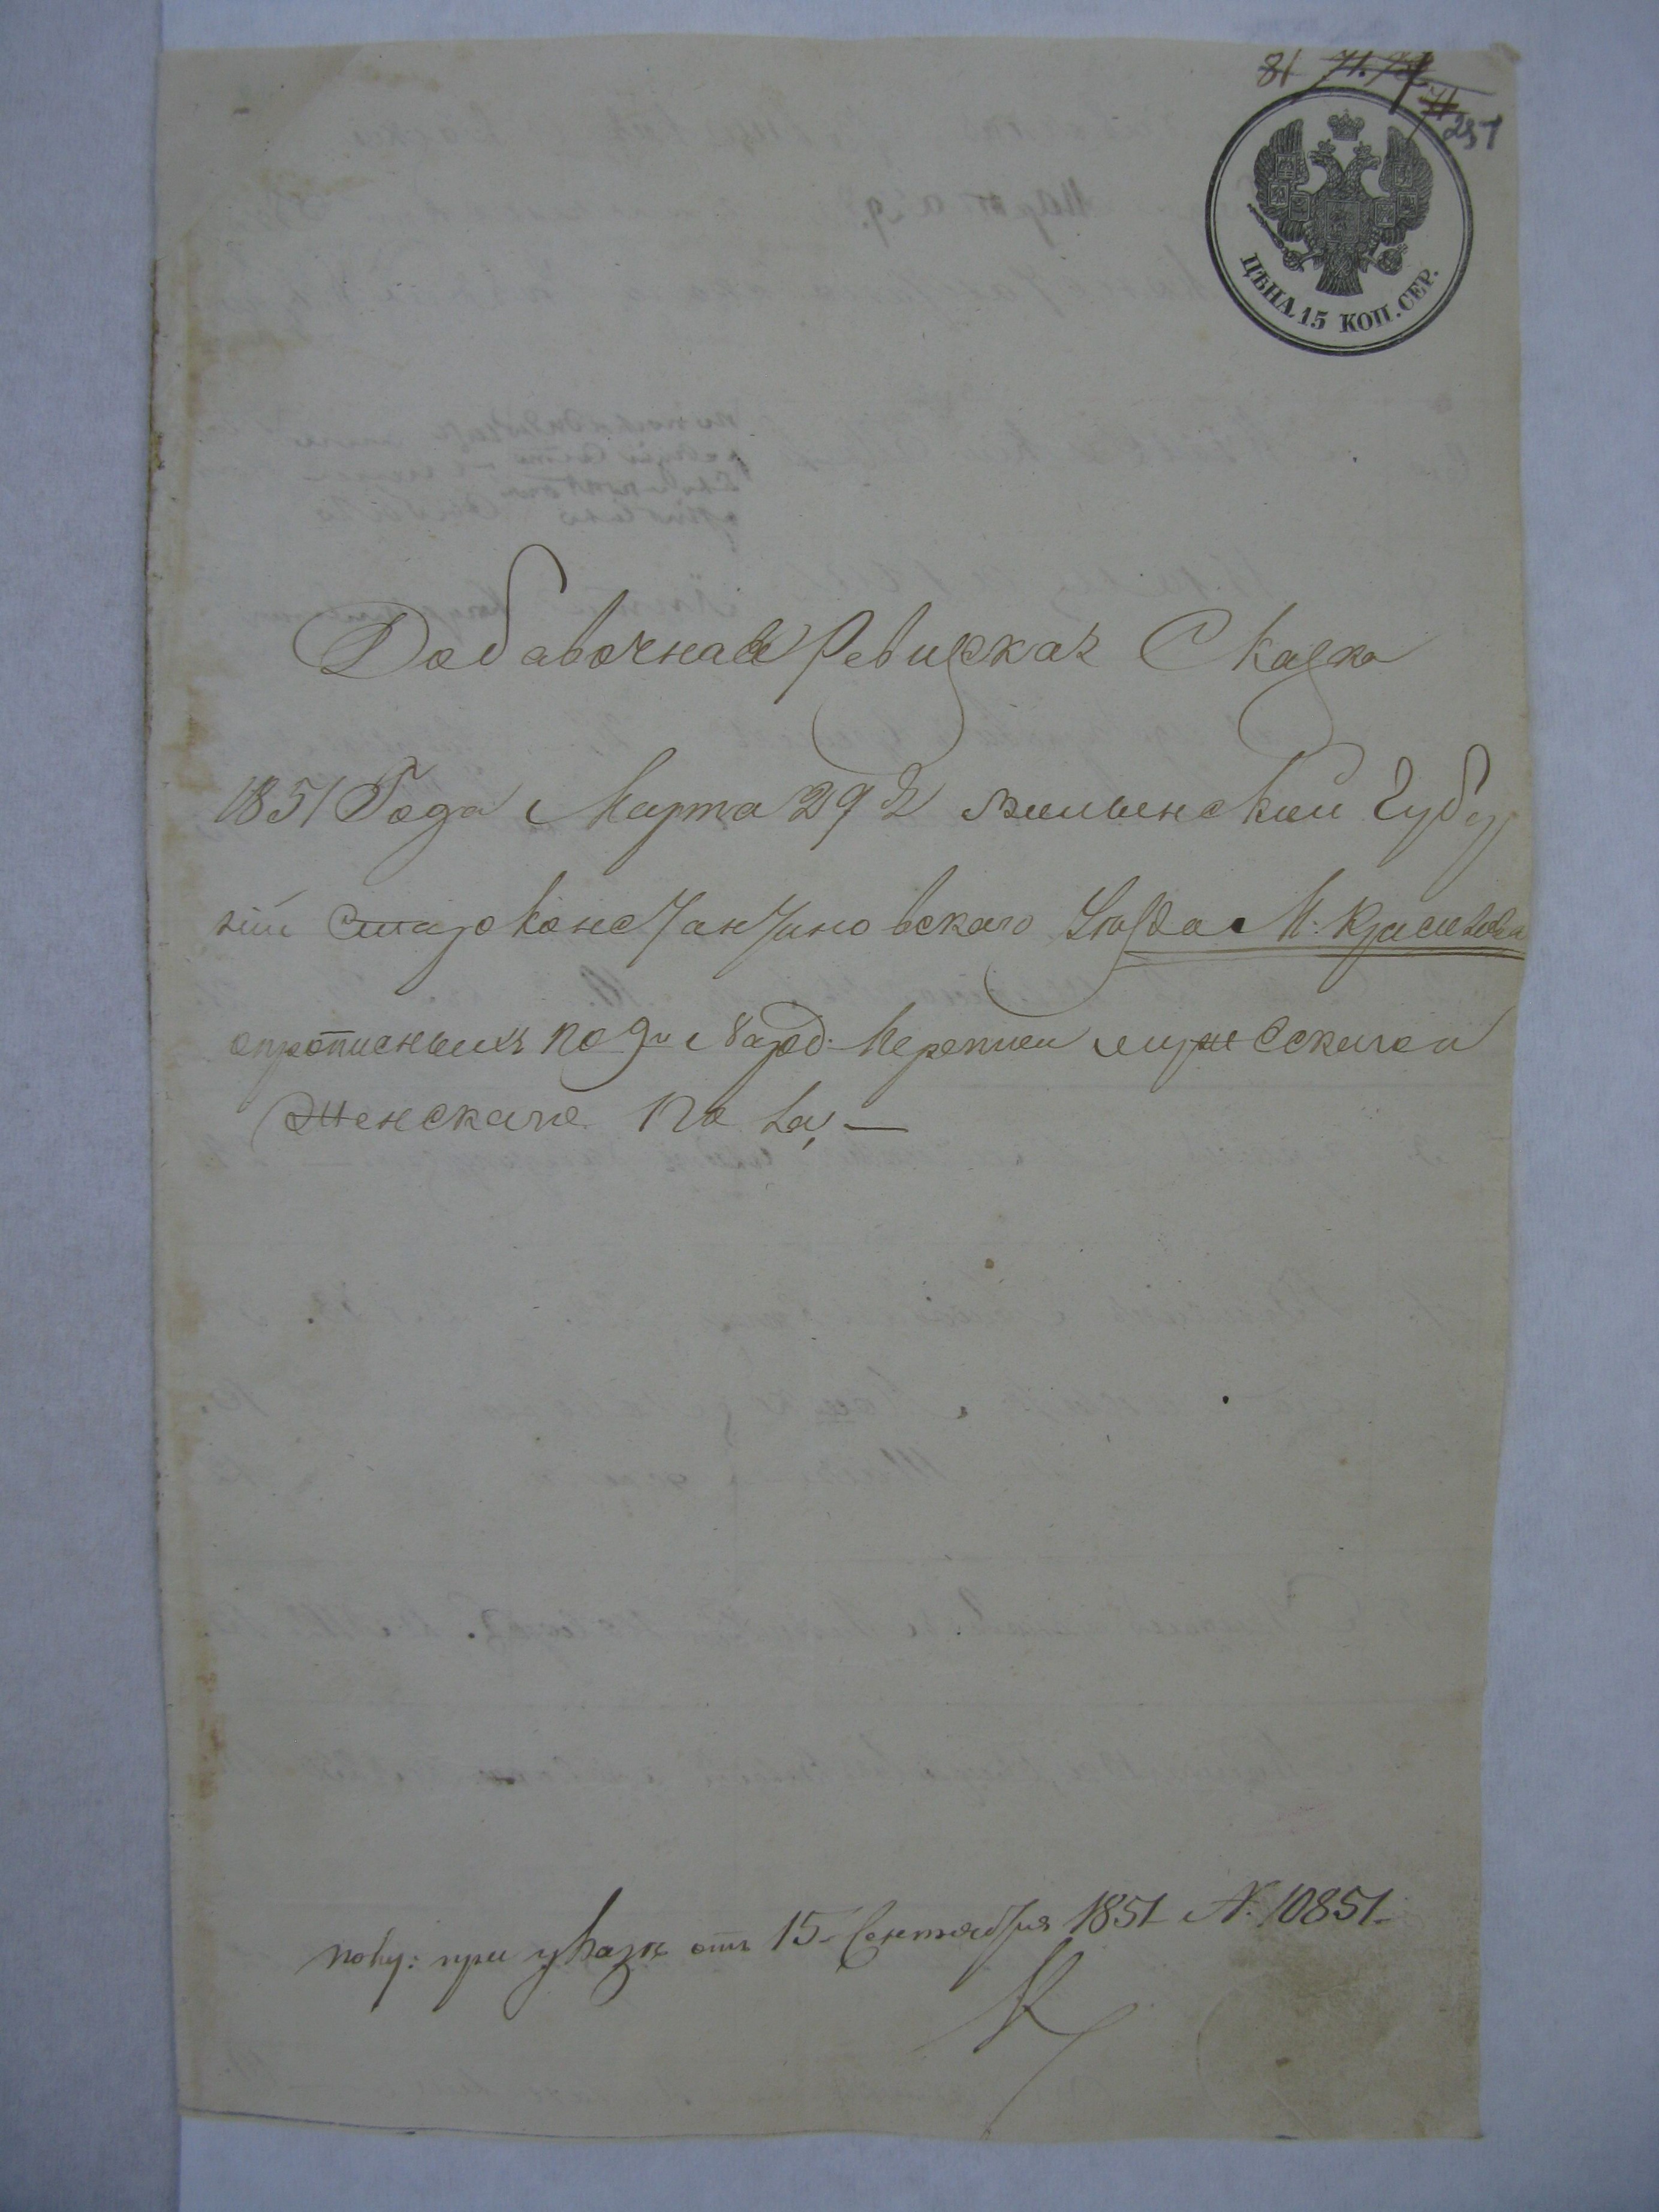 81 71. 72
71
257
ЦѢНА 15 КОП. СЕР.
Добавочная Ревизкая Сказка
1851 Года Марта 29 д волынской Губер
ніи Староконстантиновского Уѣзда М. Красилова
опрописныхъ по 9й Народ. Переписи мужескаго и
Женскаго пола, —
полу: при указѣ отъ 15 Сентября 1851 N. 10851.